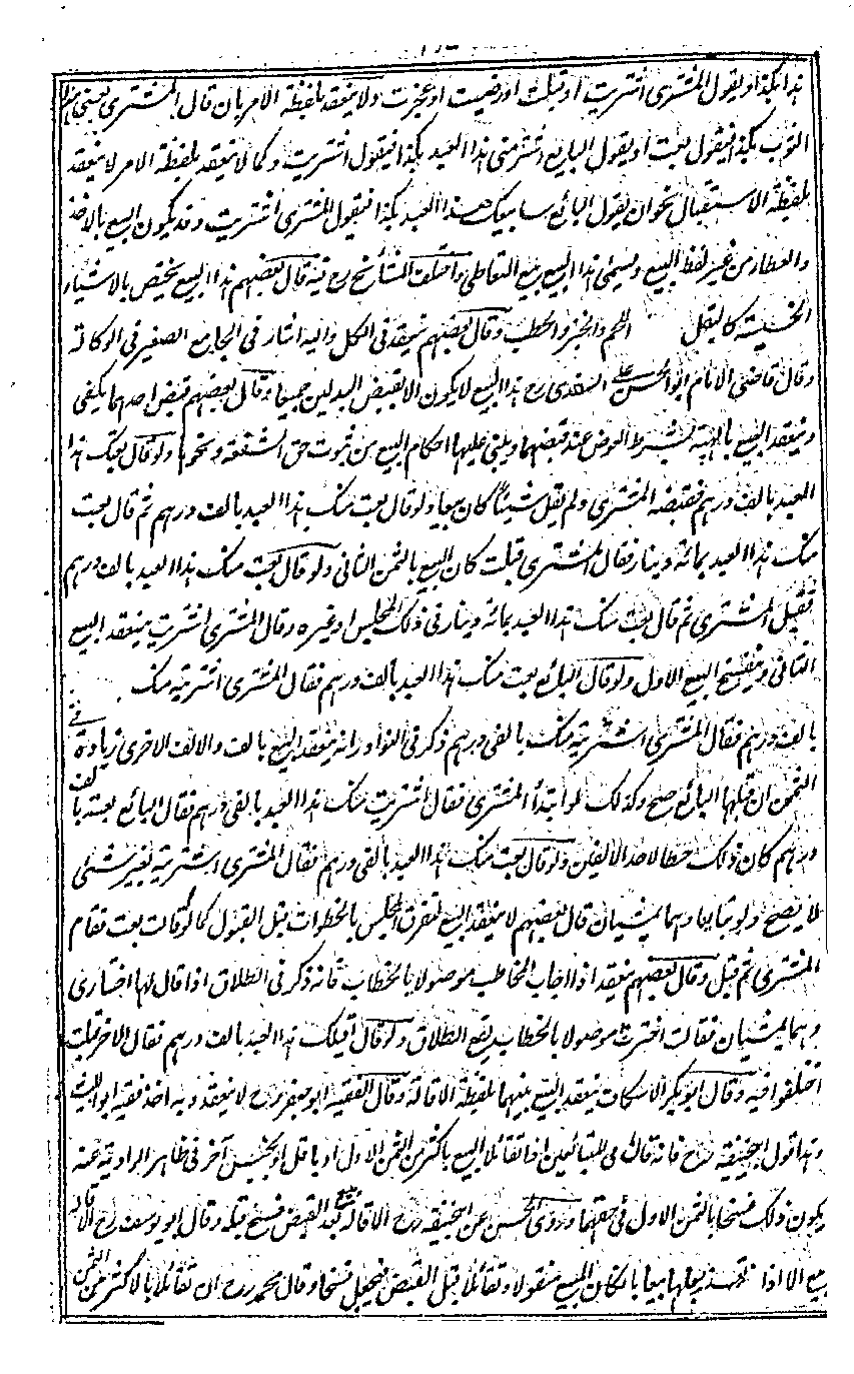 هذا بكذا ويقول المشترى اشتريت او قبلت او رضيت او اجزت ولا ينعقد بلفظة الامر بان قال المشترى بعنى هذا
الثوب بكذا فيقول بعت او يقول البايع اشتر منى هذا العبد بكذا فيقول اشتريت وكما لا ينعقد بلفظة الامر لا ينعقد
بلفظة الاستقبال نحو ان يقول البائع سابيعك هذا العبد بكذا فيقول المشترى اشتريت وقد يكون البيع بالاخذ
والعطاء من غير لفظ البيع ويسمى هذا البيع بيع التعاطى واختلف المشائخ رح فيه قال بعضهم هذا البيع يختص بالاشياء
الخسيسة كالبقل اللحم والخبز والحطب وقال بعضهم ينعقد فى الكل واليه اشار فى الجامع الصغير فى الوكالة
وقال قاضى الامام ابو الحسن على السغدى رح هذا البيع لا يكون الا بقبض البدلين جميعا وقال بعضهم قبض احدهما يكفى
وينعقد البيع بالهبة بشرط العوض عند قبضهما ويبنى عليها احكام البيع من ثبوت حق الشفعة ونحوها ولو قال بعتك هذا
العبد بالف درهم فقبضه المشترى ولم يقل شيئا كان بيعا ولو قال بعت منك هذا العبد بالف درهم ثم قال بعت
منك هذا العبد بمائة دينار فقال المشترى قبلت كان البيع بالثمن الثانى ولو قال بعت منك هذا العبد بالف درهم
فقبل المشترى ثم قال بعت منك هذا العبد بمائة دينار فى ذلك المجلس او غيره وقال المشترى اشتريت ينعقد البيع
الثانى وينفسخ البيع الاول ولو قال البائع بعت منك هذا العبد بالف درهم فقال المشترى اشتريته منك
بالف درهم فقال المشترى اشتريته منك بالفى درهم ذكر فى النوادر انه ينعقد البيع بالف والالف الاخرى زيادة فى
الثمن ان قبلها البائع صح وكذلك لو ابتدأ المشترى فقال اشتريت منك هذا العبد بالفى درهم فقال البائع بعته بالف
درهم كان ذلك حطا لاحد الالفين ولو قال بعت منك هذا العبد بالفى درهم فقال المشترى اشتريته بغير شئى
لا يصح ولو تبايعا وهما يمشيان قال بعضهم لا ينعقد البيع لتفرق المجلس بالخطوات قبل القبول كما لو قال بعت فقام
المشترى ثم قبل وقال بعضهم ينعقد اذا اجاب المخاطب موصولا بالخطاب فانه ذكر فى الطلاق اذا قال لها اختارى
وهما يمشيان فقالت اخترت موصولا بالخطاب يقع الطلاق ولو قال اقيلك هذا العبد بالف درهم فقال الاخر قبلت
اختلفوا فيه وقال ابو بكر الاسكاف ينعقد البيع بينهما بلفظة الاقالة وقال الفقيه ابو جعفر رح لا ينعقد وبه اخذ فقيه ابو الليث
وهذا قول ابيحنيفة رح فانه قال فى المتبائعين اذا تقائلا البيع باكثر من الثمن الاول او باقل او بجنس آخر فى ظاهر الرواية عنه
يكون ذلك فسخا بالثمن الاول فى حقهما وروى الحسن عن ابيحنيفة رح الاقالة بيع بعد القبض فسخ قبله وقال ابو يوسف رح الاقالة
بيع الا اذا تعذر جعلها بيعا بان كان المبيع منقولا وتقائلا قبل القبض فيجعل فسخا وقال محمد رح ان تقائلا بالاكثر من الثمن